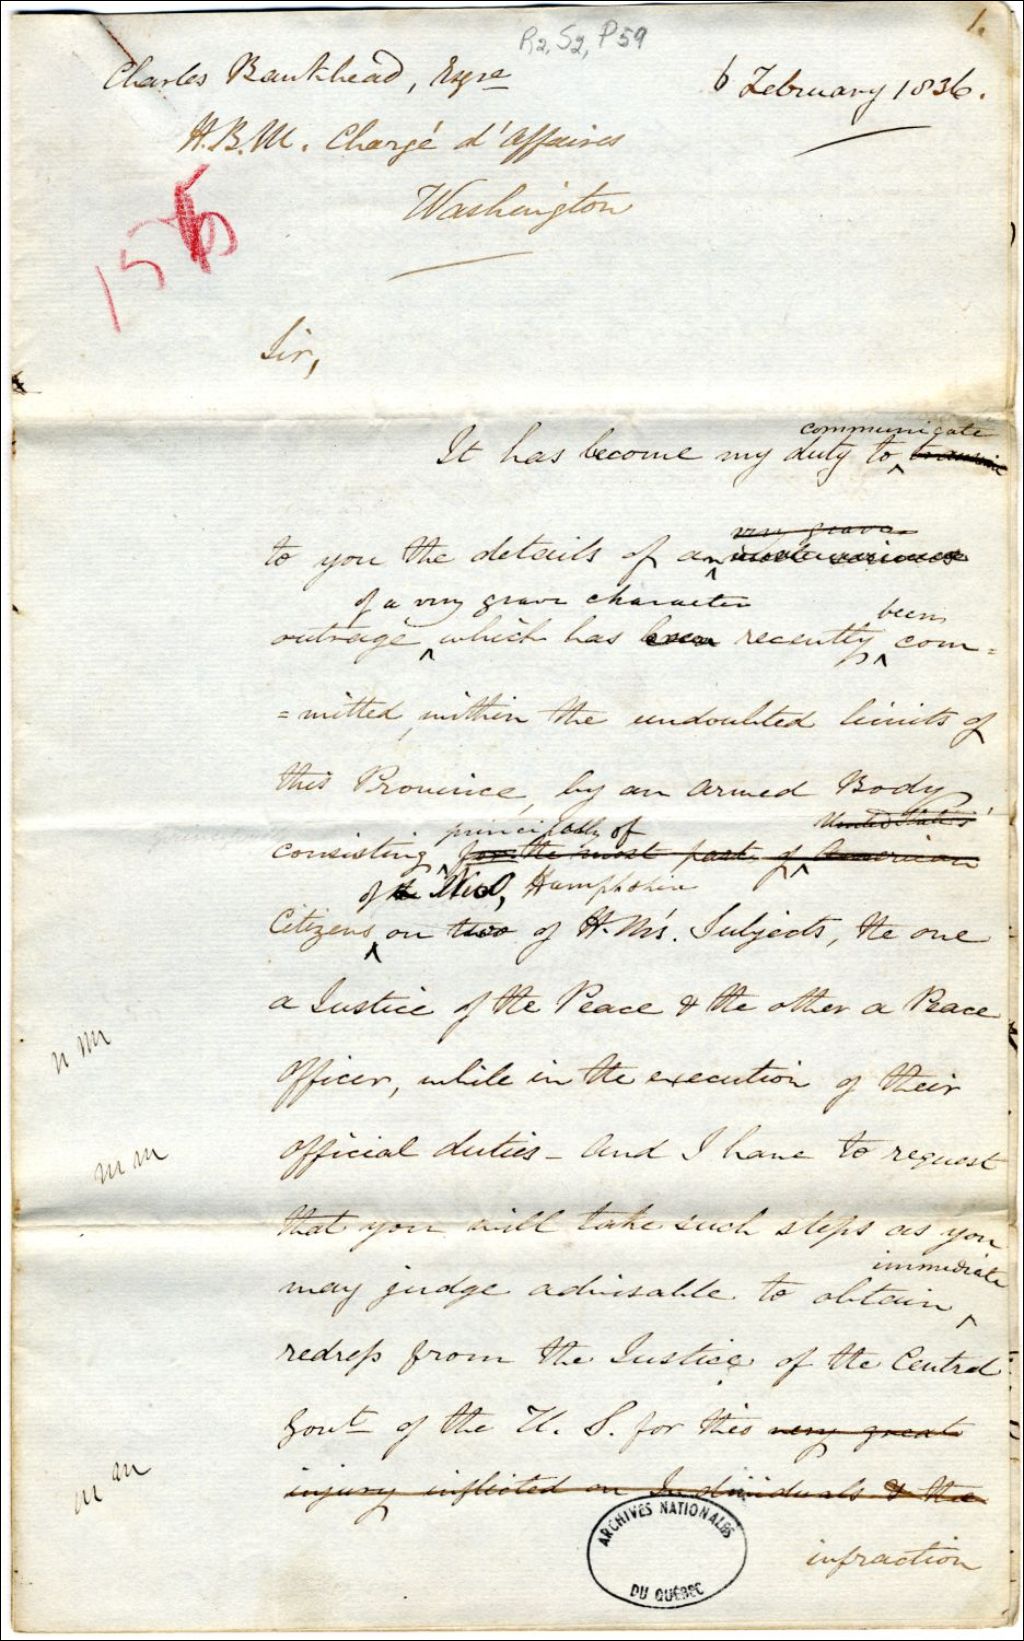 R2, S2, P59
1.
Charles Bankhead, Esqre
6 February 1836.
H.B.M. Chargé d'Affaires
Washington
Sir,
communicate
It has become my duty to
very grave
to you the details of an
of a very grave character
been
outrage which has been recently com=
=mitted, within the undoubted limits of
this Province, by an armed Body
principally of
United States'
consisting for the most part of American
of New Hampshire
Citizens on two of H.M's. Subjects, the one
a Justice of the Peace & the other a Peace
Officer, while in the execution of their
official duties – and I have to request
that you will take such steps as you
immediate
may judge advisable to obtain
redress from the Justice of the Central
Govt of the U. S. for this very great
injury inflicted on Individuals & the
infraction
ARCHIVES NATIONALES
DU QUÉBEC